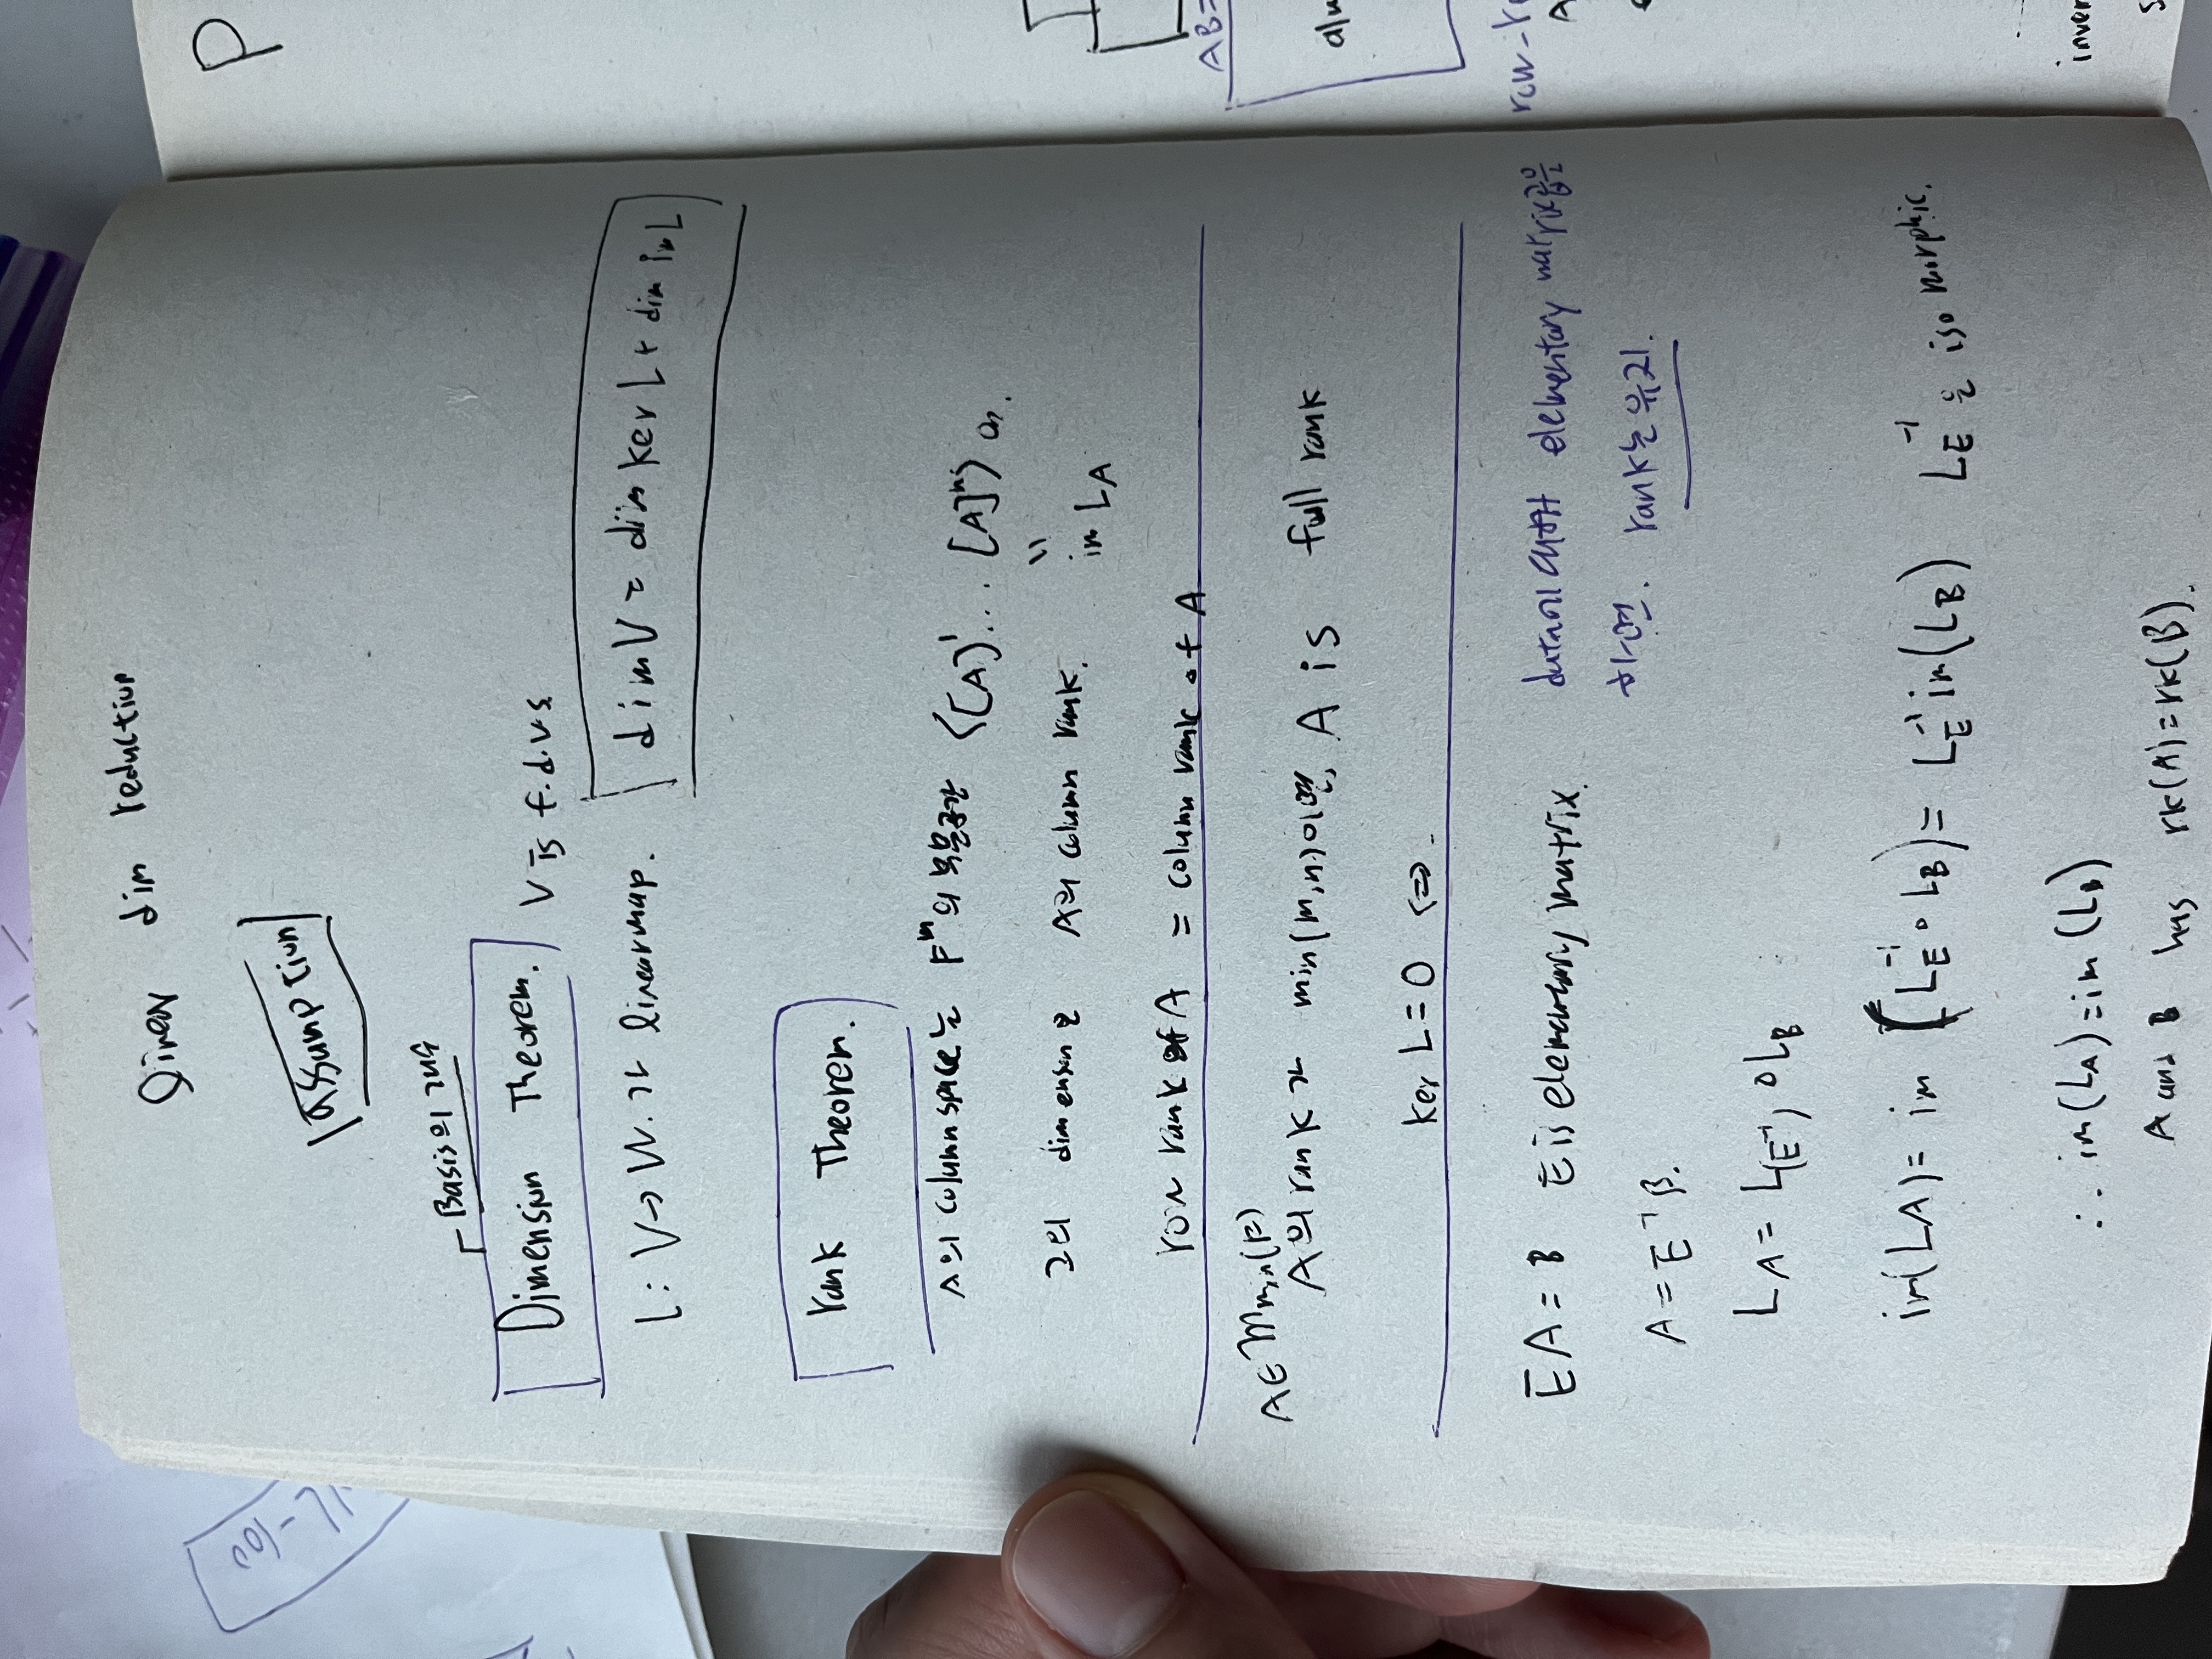 linear dim reduction
assumption
Basis의 개수
Dimension Theorem. V is f.d.v.s
L: V→W. 가 linear map. dim V = dim ker L + dim im L
rank Theorem.
A의 column space는 F^m의 부분공간 ⟨[A]^1 ... [A]^n⟩
"
그의 dimension은 A의 column rank. im L_A
row rank of A = column rank of A
A∈M_{m,n}(F)
A의 rank가 min(m,n)이면, A is full rank
ker L = 0 ⇔ .
EA = B E is elementary matrix. data에 대해 elementary matrix곱을
A = E^{-1} B. 하면. rank는 유지.
L_A = L_(E^{-1}) ∘ L_B
im(L_A) = im (L_E^{-1} ∘ L_B) = L_E^{-1} im(L_B) L_E^{-1}은 isomorphic.
∴ im(L_A) = im (L_B)
A and B has rk(A) = rk(B).
P
AB=
row-re
A
inver
s